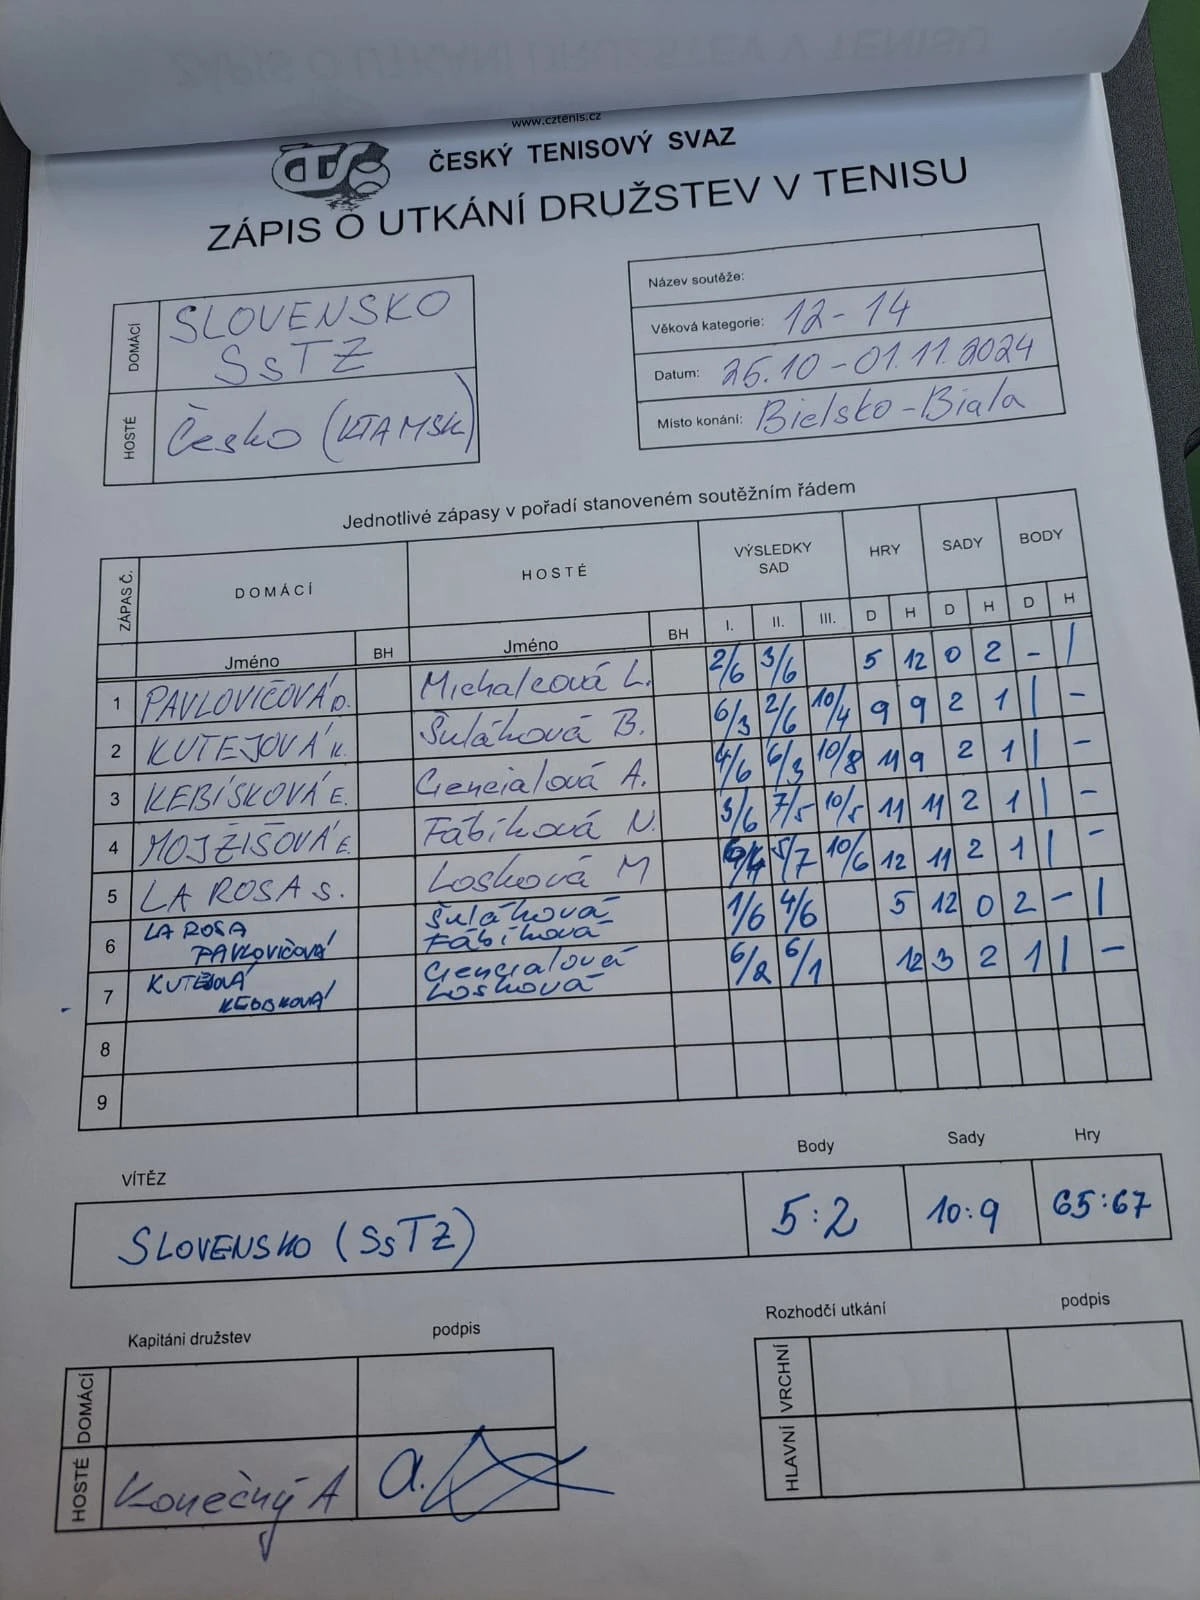 www.cztenis.cz
ČTS
ČESKÝ TENISOVÝ SVAZ
ZÁPIS O UTKÁNÍ DRUŽSTEV V TENISU
DOMÁCÍ SLOVENSKO
SsTZ
HOSTÉ Česko (KTAMSK)
Název soutěže:
Věková kategorie: 12-14
Datum: 26.10-01.11.2024
Místo konání: Bielsko-Biala
Jednotlivé zápasy v pořadí stanoveném soutěžním řádem
ZÁPAS Č. DOMÁCÍ HOSTÉ VÝSLEDKY SAD HRY SADY BODY
Jméno BH Jméno BH I. II. III. D H D H D H
1 PAVLOVIČOVÁ D. Michalcová L. 2/6 3/6 5 12 0 2 - |
2 KUTEJOVÁ K. Šuláková B. 6/3 2/6 10/4 9 9 2 1 | -
3 KEBÍSKOVÁ E. Giencialová A. 4/6 6/3 10/8 11 9 2 1 | -
4 MOJŽIŠOVÁ E. Fábiková N. 3/6 7/5 10/5 11 11 2 1 | -
5 LA ROSA S. Losková M 5/7 10/6 12 11 2 1 | -
6 LA ROSA Šuláková 1/6 4/6 5 12 0 2 - |
PAVLOVIČOVÁ Fábiková
7 KUTEJOVÁ Giencialová 6/2 6/1 12 3 2 1 | -
Losková
8
9
VÍTĚZ Body Sady Hry
SLOVENSKO (SsTZ) 5:2 10:9 65:67
Kapitáni družstev podpis Rozhodčí utkání podpis
DOMÁCÍ VRCHNÍ
HOSTÉ Konečný A HLAVNÍ